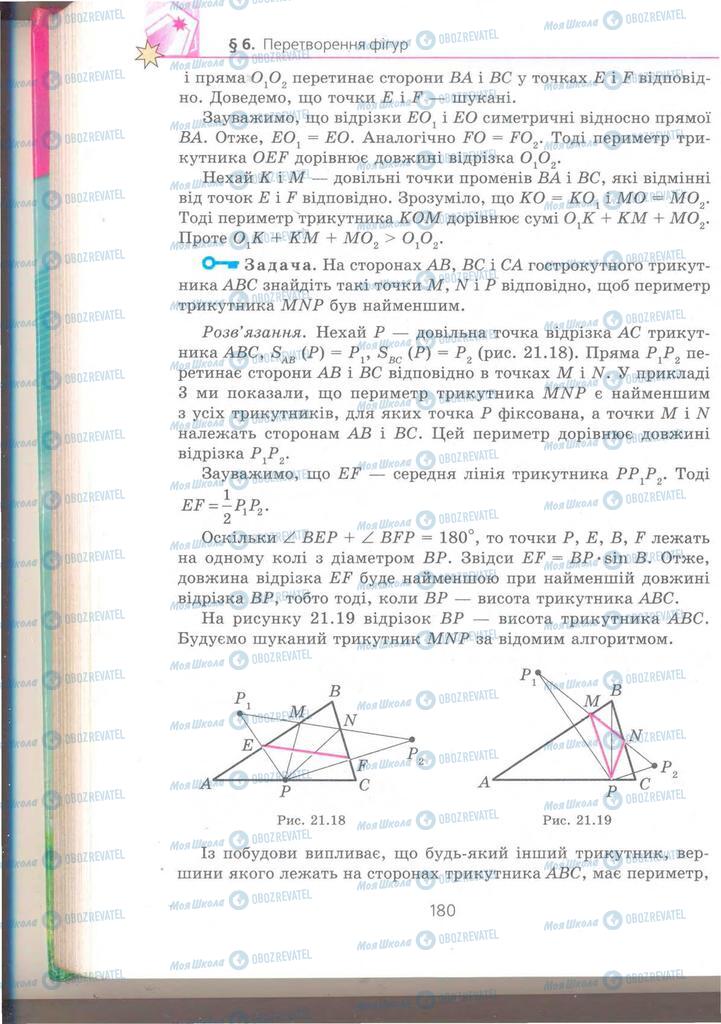 § 6. Перетворення фігур
і пряма O₁O₂ перетинає сторони BA і BC у точках E і F відповід-
но. Доведемо, що точки E і F — шукані.
Зауважимо, що відрізки EO₁ і EO симетричні відносно прямої
BA. Отже, EO₁ = EO. Аналогічно FO = FO₂. Тоді периметр три-
кутника OEF дорівнює довжині відрізка O₁O₂.
Нехай K і M — довільні точки променів BA і BC, які відмінні
від точок E і F відповідно. Зрозуміло, що KO = KO₁ і MO = MO₂.
Тоді периметр трикутника KOM дорівнює сумі O₁K + KM + MO₂.
Проте O₁K + KM + MO₂ > O₁O₂.
Задача. На сторонах AB, BC і CA гострокутного трикут-
ника ABC знайдіть такі точки M, N і P відповідно, щоб периметр
трикутника MNP був найменшим.
Розв'язання. Нехай P — довільна точка відрізка AC трикут-
ника ABC, S_AB (P) = P₁, S_BC (P) = P₂ (рис. 21.18). Пряма P₁P₂ пе-
ретинає сторони AB і BC відповідно в точках M і N. У прикладі
3 ми показали, що периметр трикутника MNP є найменшим
з усіх трикутників, для яких точка P фіксована, а точки M і N
належать сторонам AB і BC. Цей периметр дорівнює довжині
відрізка P₁P₂.
Зауважимо, що EF — середня лінія трикутника PP₁P₂. Тоді
EF = 1/2 P₁P₂.
Оскільки ∠ BEP + ∠ BFP = 180°, то точки P, E, B, F лежать
на одному колі з діаметром BP. Звідси EF = BP·sin B. Отже,
довжина відрізка EF буде найменшою при найменшій довжині
відрізка BP, тобто тоді, коли BP — висота трикутника ABC.
На рисунку 21.19 відрізок BP — висота трикутника ABC.
Будуємо шуканий трикутник MNP за відомим алгоритмом.
P₁ M B N E F P₂ A P C
P₁ M B N P₂ A P C
Рис. 21.18
Рис. 21.19
Із побудови випливає, що будь-який інший трикутник, вер-
шини якого лежать на сторонах трикутника ABC, має периметр,
180
МояШкола OBOZREVATEL